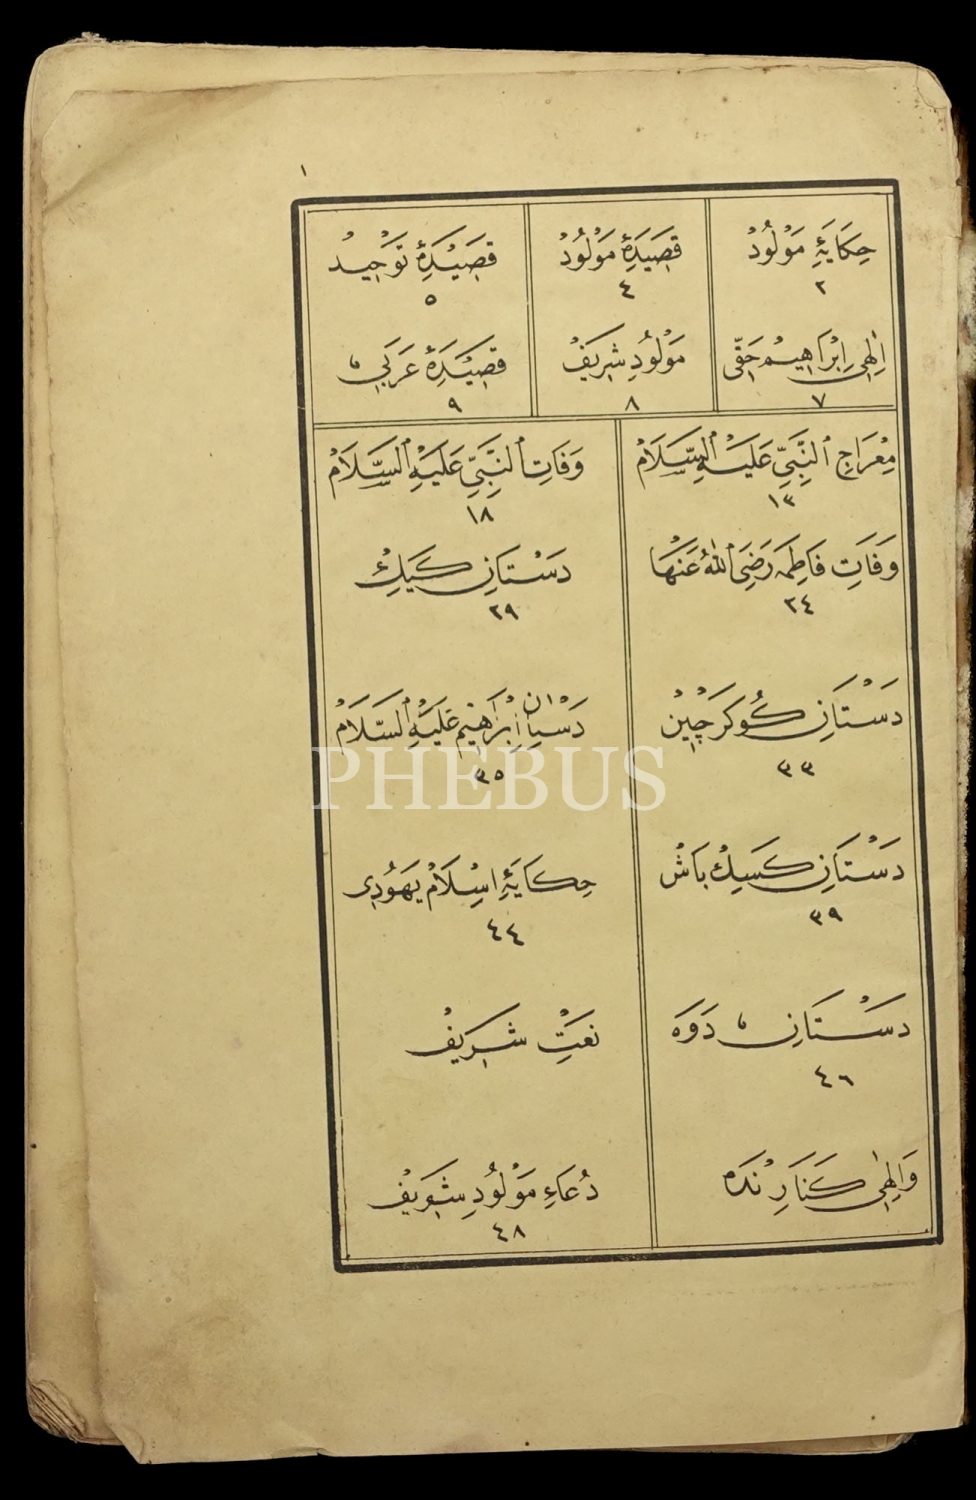 ١
حِكَايَۀِ مَوْلُودْ
٢
قَصِيدَۀِ مَوْلُودْ
٤
قَصِيدَۀِ تَوْحِيدْ
٥
اِلٰهِى اِبْرَاهِيمْ حَقِّى
٧
مَوْلُودِ شَرِيفْ
٨
قَصِيدَۀِ عَرَبِى
٩
مِعْرَاجِ ٱلنَّبِيِّ عَلَيْهِ ٱلسَّلَامْ
١٣
وَفَاتِ ٱلنَّبِيِّ عَلَيْهِ ٱلسَّلَامْ
١٨
وَفَاتِ فَاطِمَه رَضِيَ ٱللّٰهُ عَنْهَا
٢٤
دَسْتَانِ كَيِكْ
٢٩
دَسْتَانِ كُوكَرْجِينْ
٣٣
دَسْتَانِ اِبْرَاهِيمْ عَلَيْهِ ٱلسَّلَامْ
٣٥
دَسْتَانِ كَسِكْ بَاشْ
٣٩
حِكَايَۀِ اِسْلَامْ يَهُودِى
٤٤
دَسْتَانِ دَوَه
٤٦
نَعْتِ شَرِيفْ
وَاِلٰهِى كَنَارِنْدَه
دُعَاءِ مَوْلُودِ شَرِيفْ
٤٨
PHEBUS